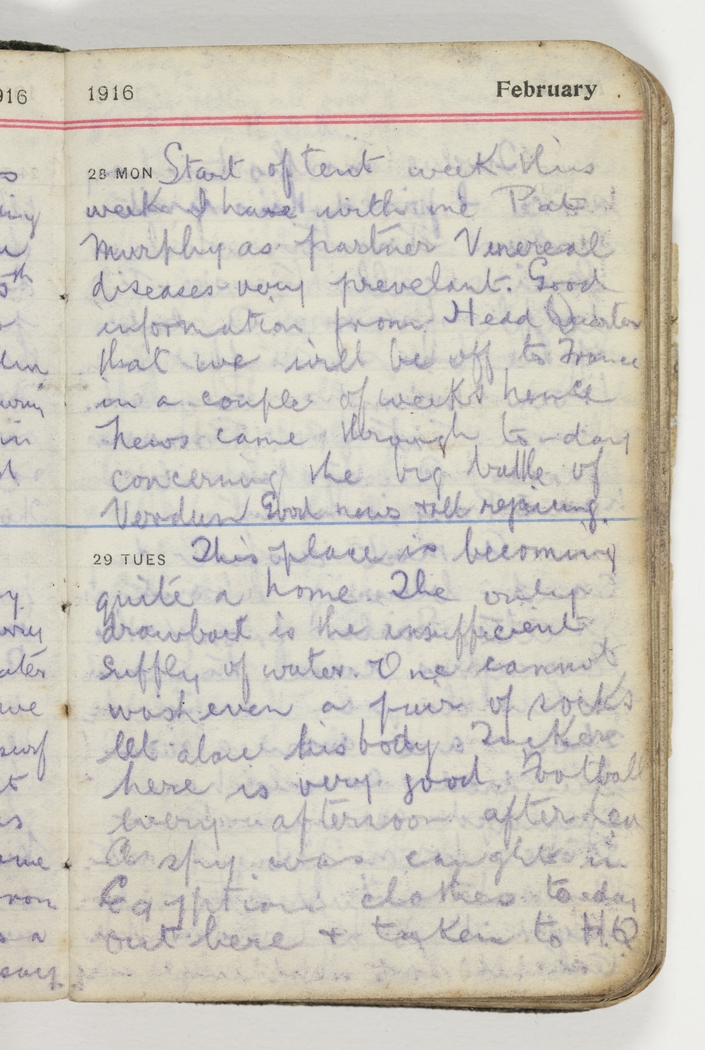 916
1916 February
28 MON Start of tent week this
week I have with me Pat
Murphy as partner Venereal
diseases very prevelant. Good
information from Head Quarters
that we will be off to France
in a couple of weeks hence
News came through to-day
concerning the big battle of
Verdun Good news & all rejoicing.
29 TUES This place is becoming
quite a home. The only
drawback is the insufficient
supply of water. One cannot
wash even a pair of socks
let alone his body. Tucker
here is very good. Football
every afternoon after tea
A spy was caught in
Egyptian clothes to-day
out here & taken to H.Q